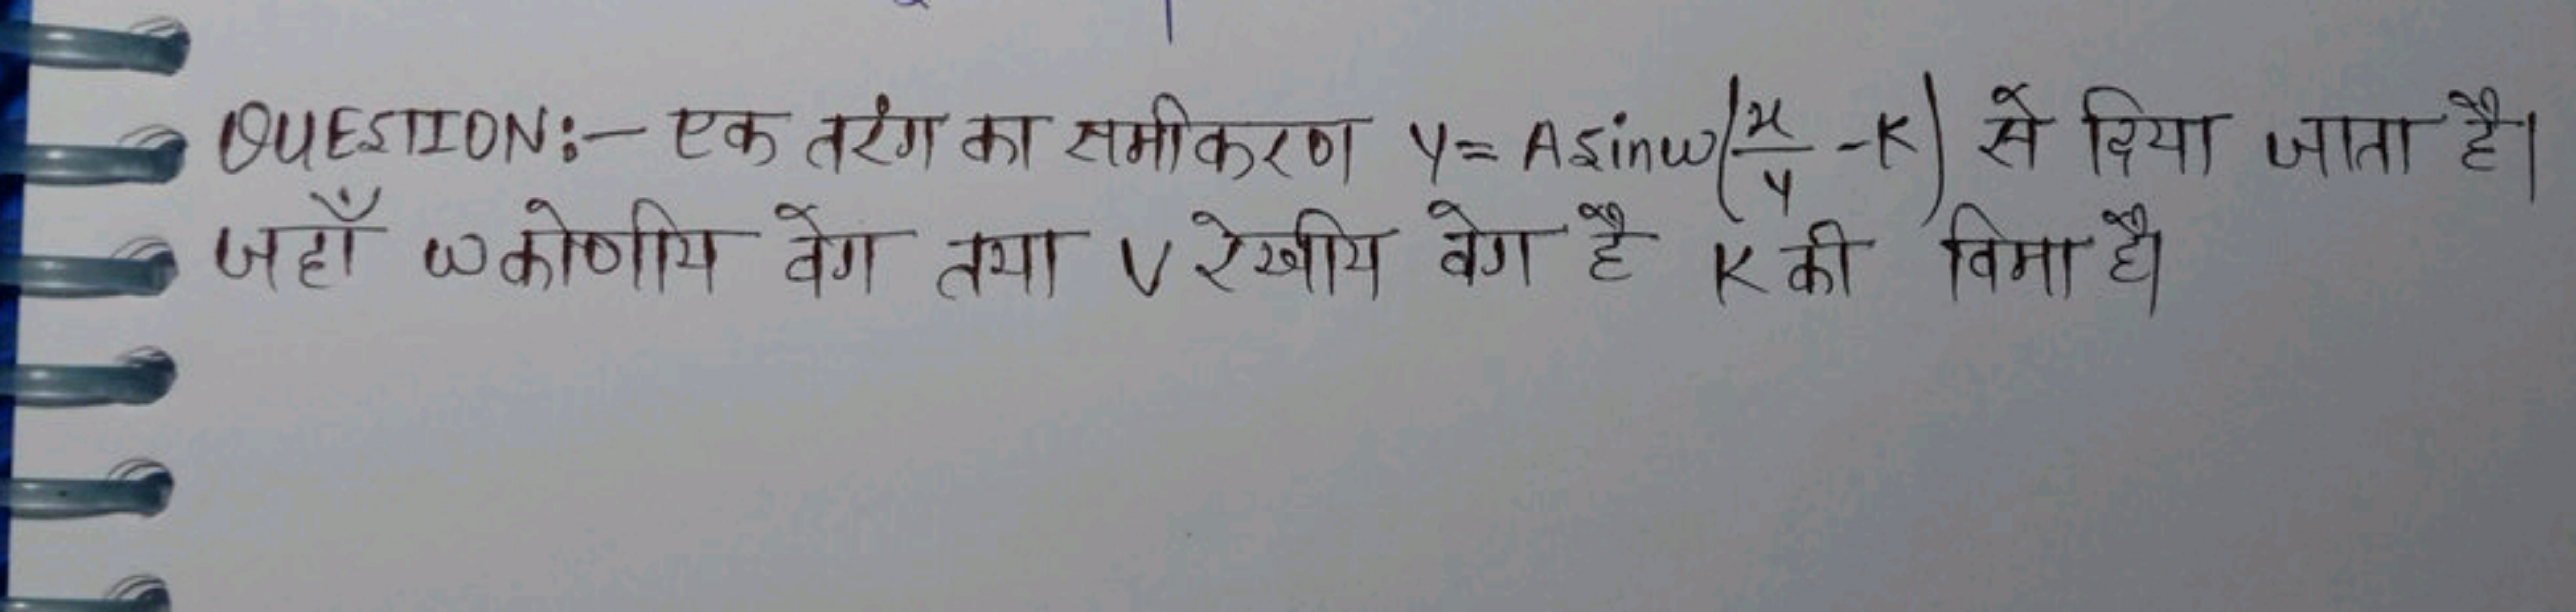 QUESTION:- एक तरंग का समीकरण y= Asinω(x/y -K) से दिया जाता है।
जहाँ ω कोणीय वेग तथा V रेखीय वेग है K की विमा है।